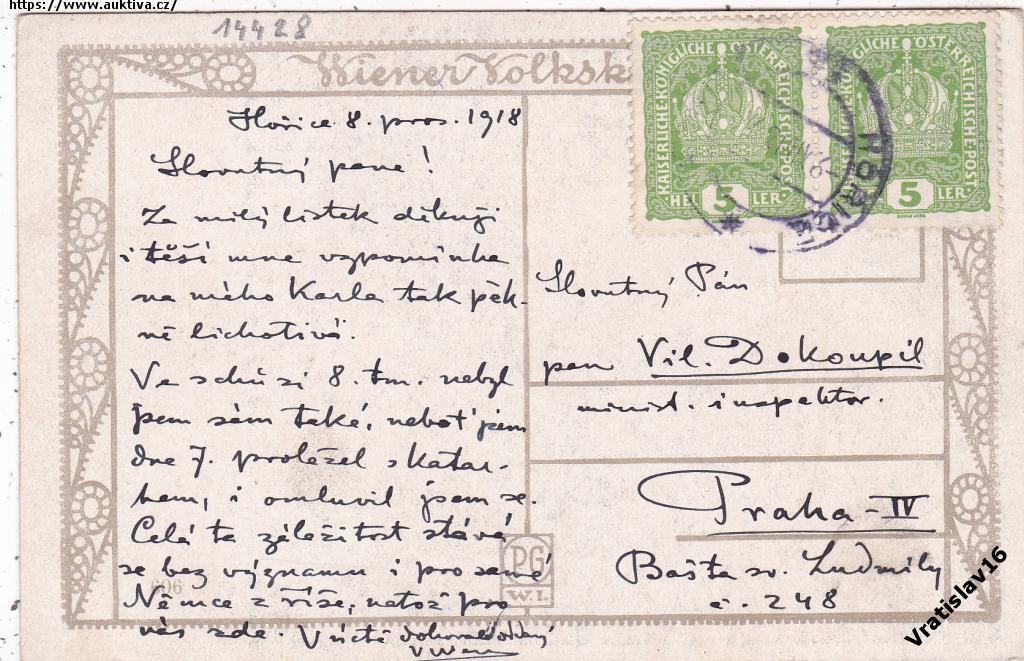 https://www.auktiva.cz/
14428
Wiener Volksk
KAISERLICHE KÖNIGLICHE ÖSTERREICHISCHE POST
5
HELLER
KAISERLICHE KÖNIGLICHE ÖSTERREICHISCHE POST
5
HELLER
HOŘICE
Hořice 8. pros. 1918
Slovutný pane!
Za milý lístek děkuji
i těší mne vzpomínka
na mého Karla tak pěk-
ně lichotivá.
Ve schůzi 8. t.m. nebyl
jsem sám také, neboť jsem
dne 7. proležel s katar-
hem, i omluvil jsem se.
Celá ta záležitost stává
se bez významu i pro samé
Němce z říše, natož pro
nás zde. V úctě dokonalé oddaný
Slovutný Pán
pan Vil. Dokoupil
minist. inspektor.
Praha - IV
Bašta sv. Ludmily
č. 248
696
PG
W.I.
Vratislav16